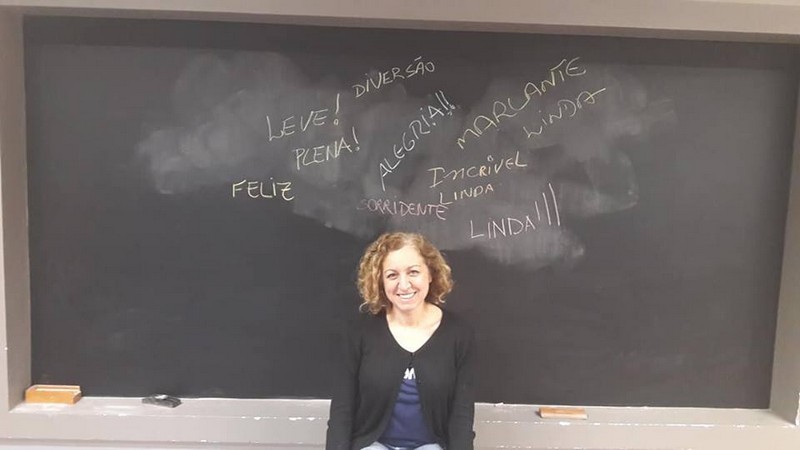 DIVERSÃO
LEVE!
PLENA!
ALEGRIA!!
MARCANTE
LINDA
INCRÍVEL
LINDA
FELIZ
SORRIDENTE
LINDA!!!